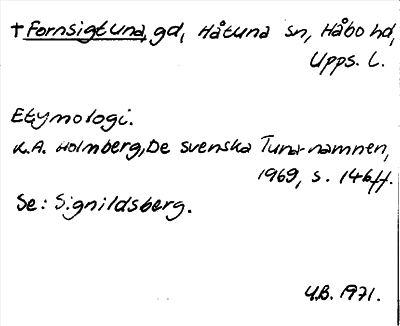 †Fornsigtuna, gd, Håtuna sn, Håbo hd,
Upps. l.
Etymologi.
K.A. Holmberg, De svenska Tuna-namnen,
1969, s. 146ff.
Se: Signildsberg.
U.B. 1971.